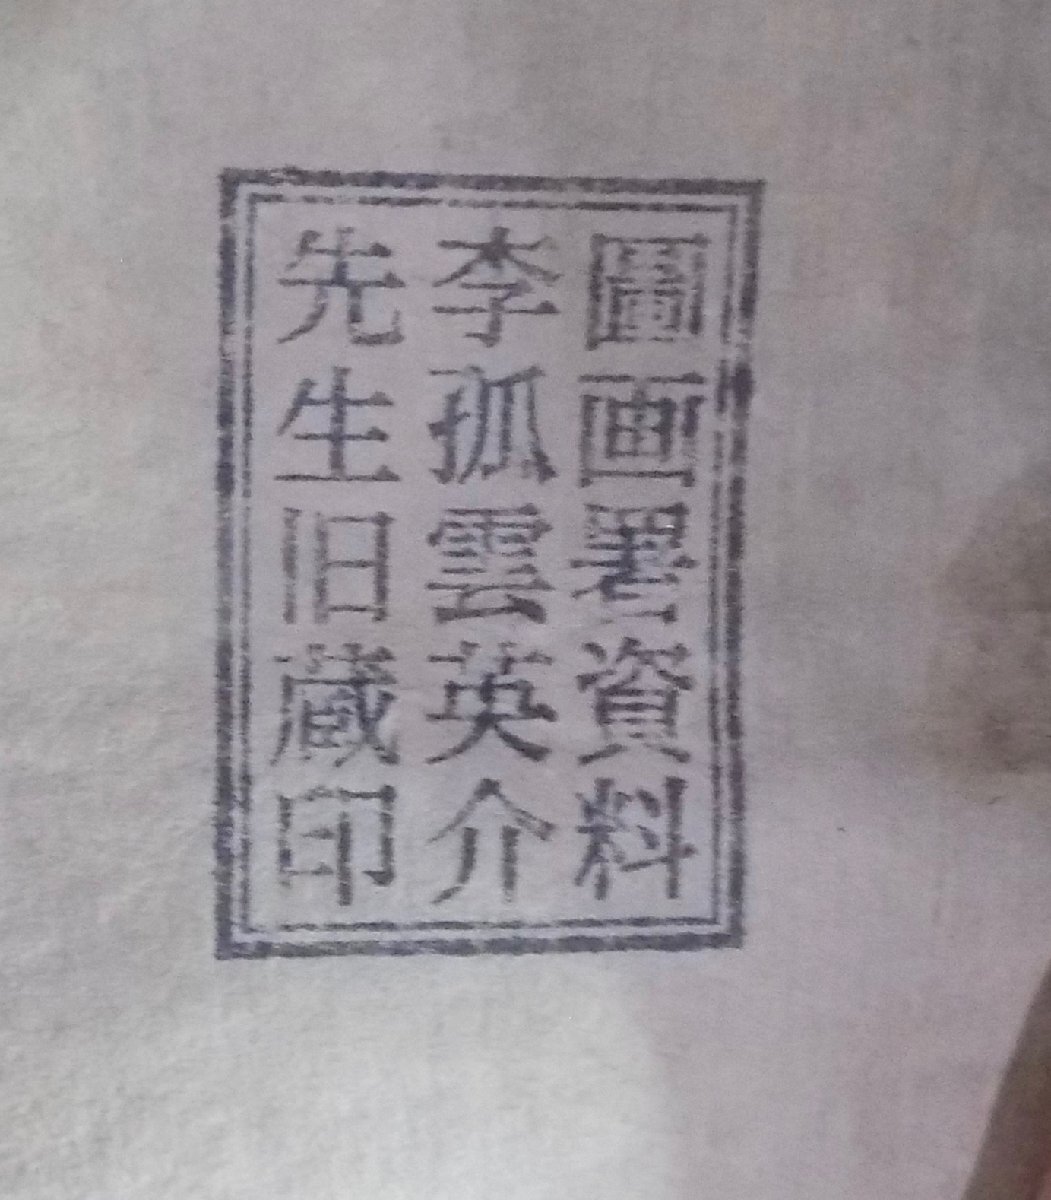 圖画署資料
李孤雲英介
先生旧蔵印